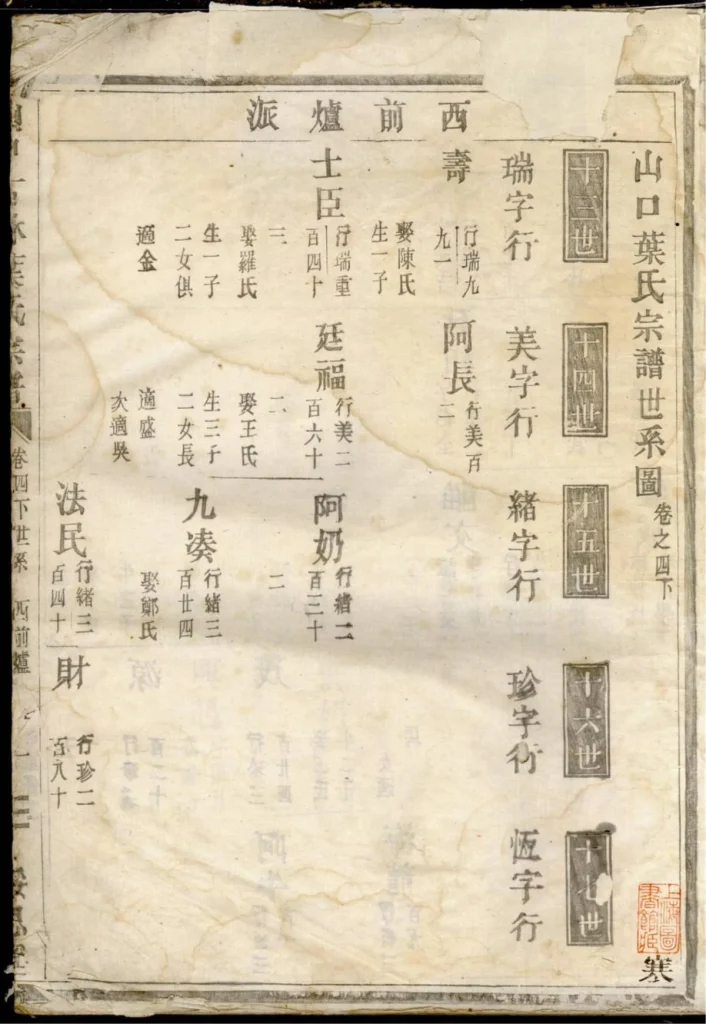 山口葉氏宗譜世系圖 卷之四下
西前爐派
十三世
瑞字行
十四世
美字行
十五世
緒字行
十六世
珍字行
十七世
恆字行
壽
行瑞九
九一
娶陳氏
生一子
士臣
行瑞重
百四十
三
娶羅氏
生一子
二女俱
適金
阿長
行美百
二
廷福
行美二
百六十
二
娶王氏
生三子
二女長
適盛
次適吳
阿奶
行緒二
百三十
二
九湊
行緒三
百廿四
娶鄭氏
法民
行緒三
百四十
財
行珍二
百八十
卷四下世系 西前爐
上海圖
書館藏
塞